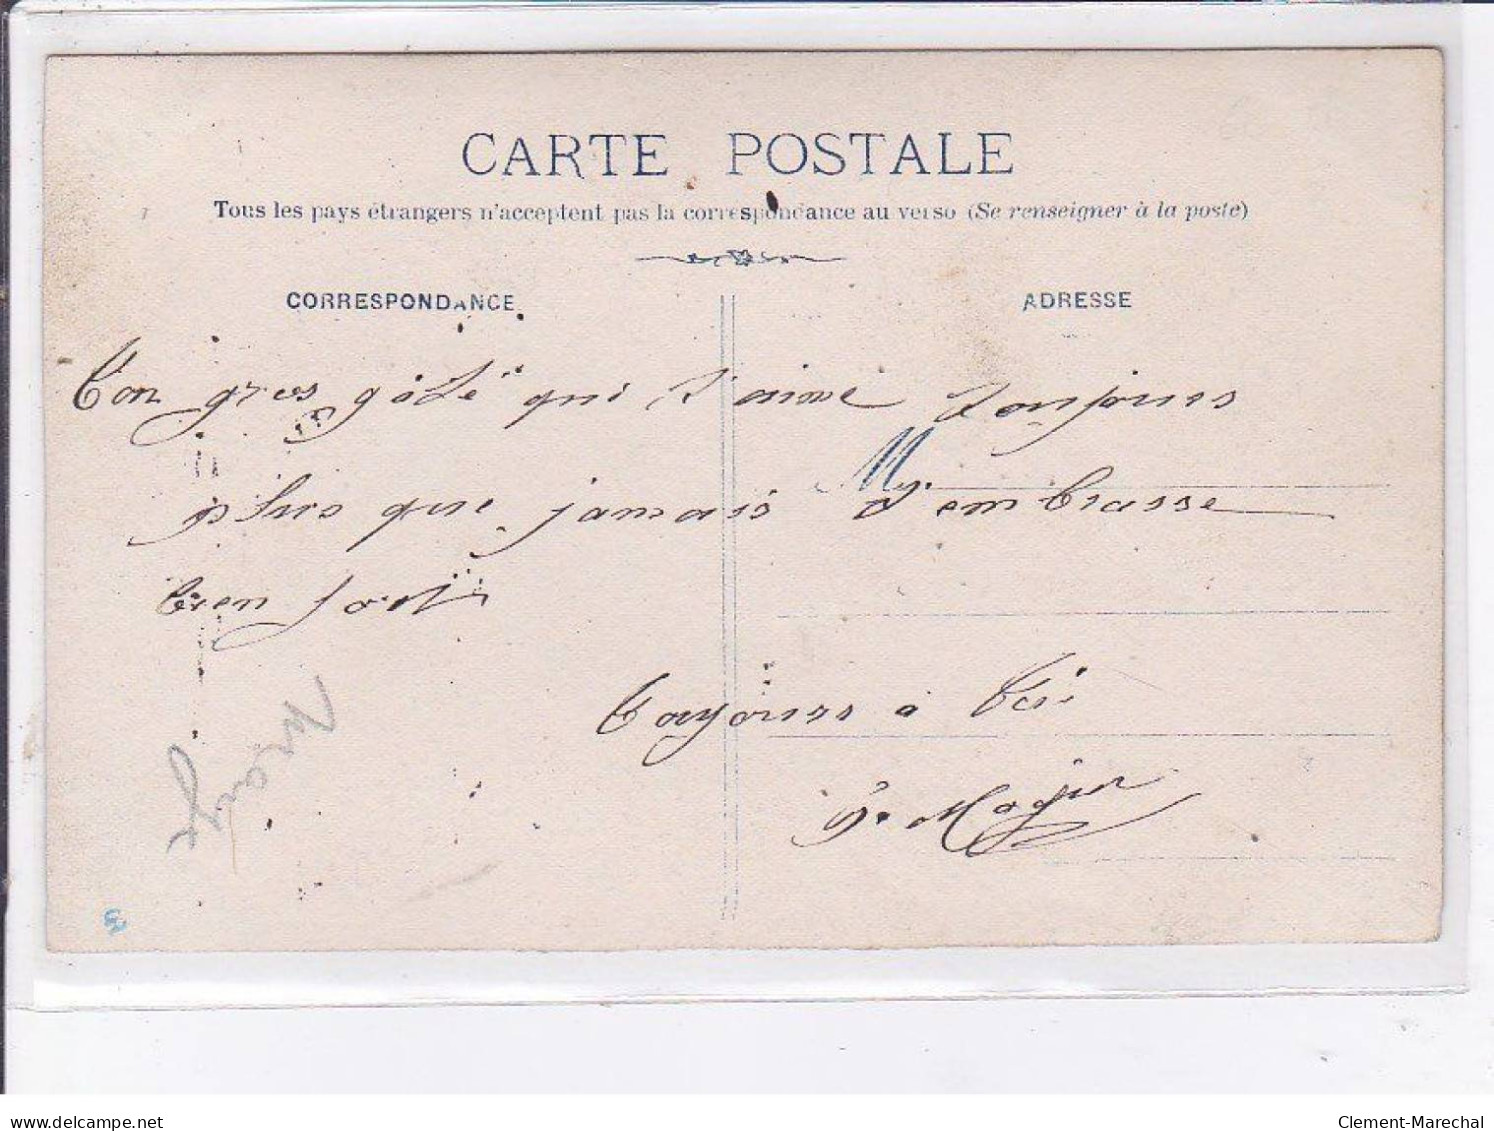 CARTE POSTALE
Tous les pays étrangers n'acceptent pas la correspondance au verso (Se renseigner à la poste)
CORRESPONDANCE
ADRESSE
Ton gros gâté qui t'aime toujours
M
plus que jamais t'embrasse
bien fort
Toujours à Toi
delcampe.net
Clement-Marechal